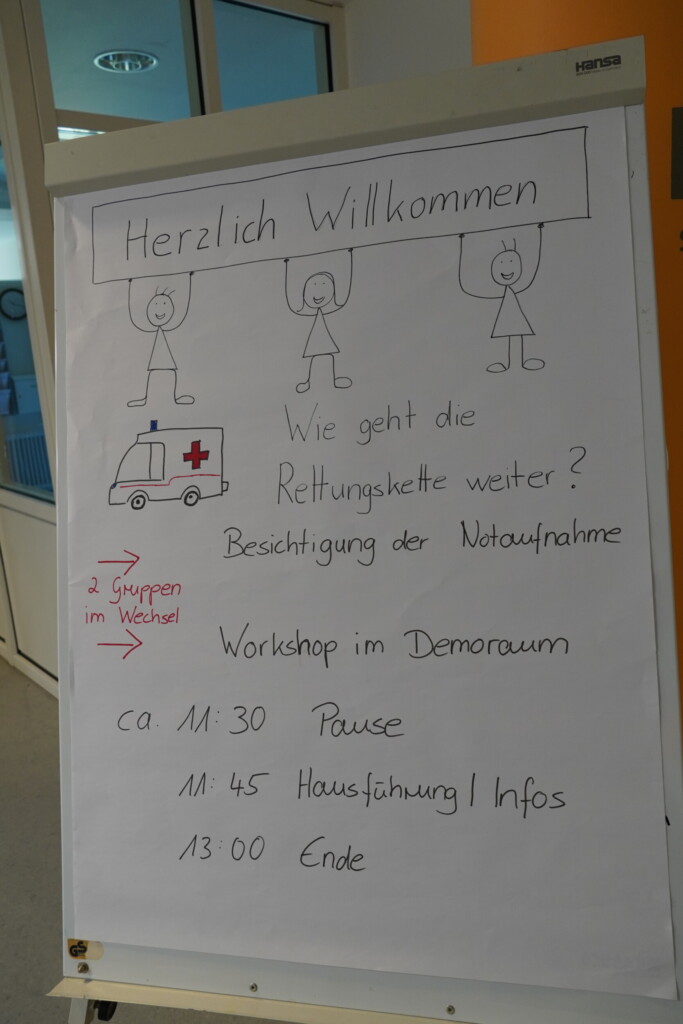 Hansa
Herzlich Willkommen
Wie geht die
Rettungskette weiter?
Besichtigung der Notaufnahme
2 Gruppen
im Wechsel
Workshop im Demoraum
ca. 11:30 Pause
11:45 Hausführung / Infos
13:00 Ende